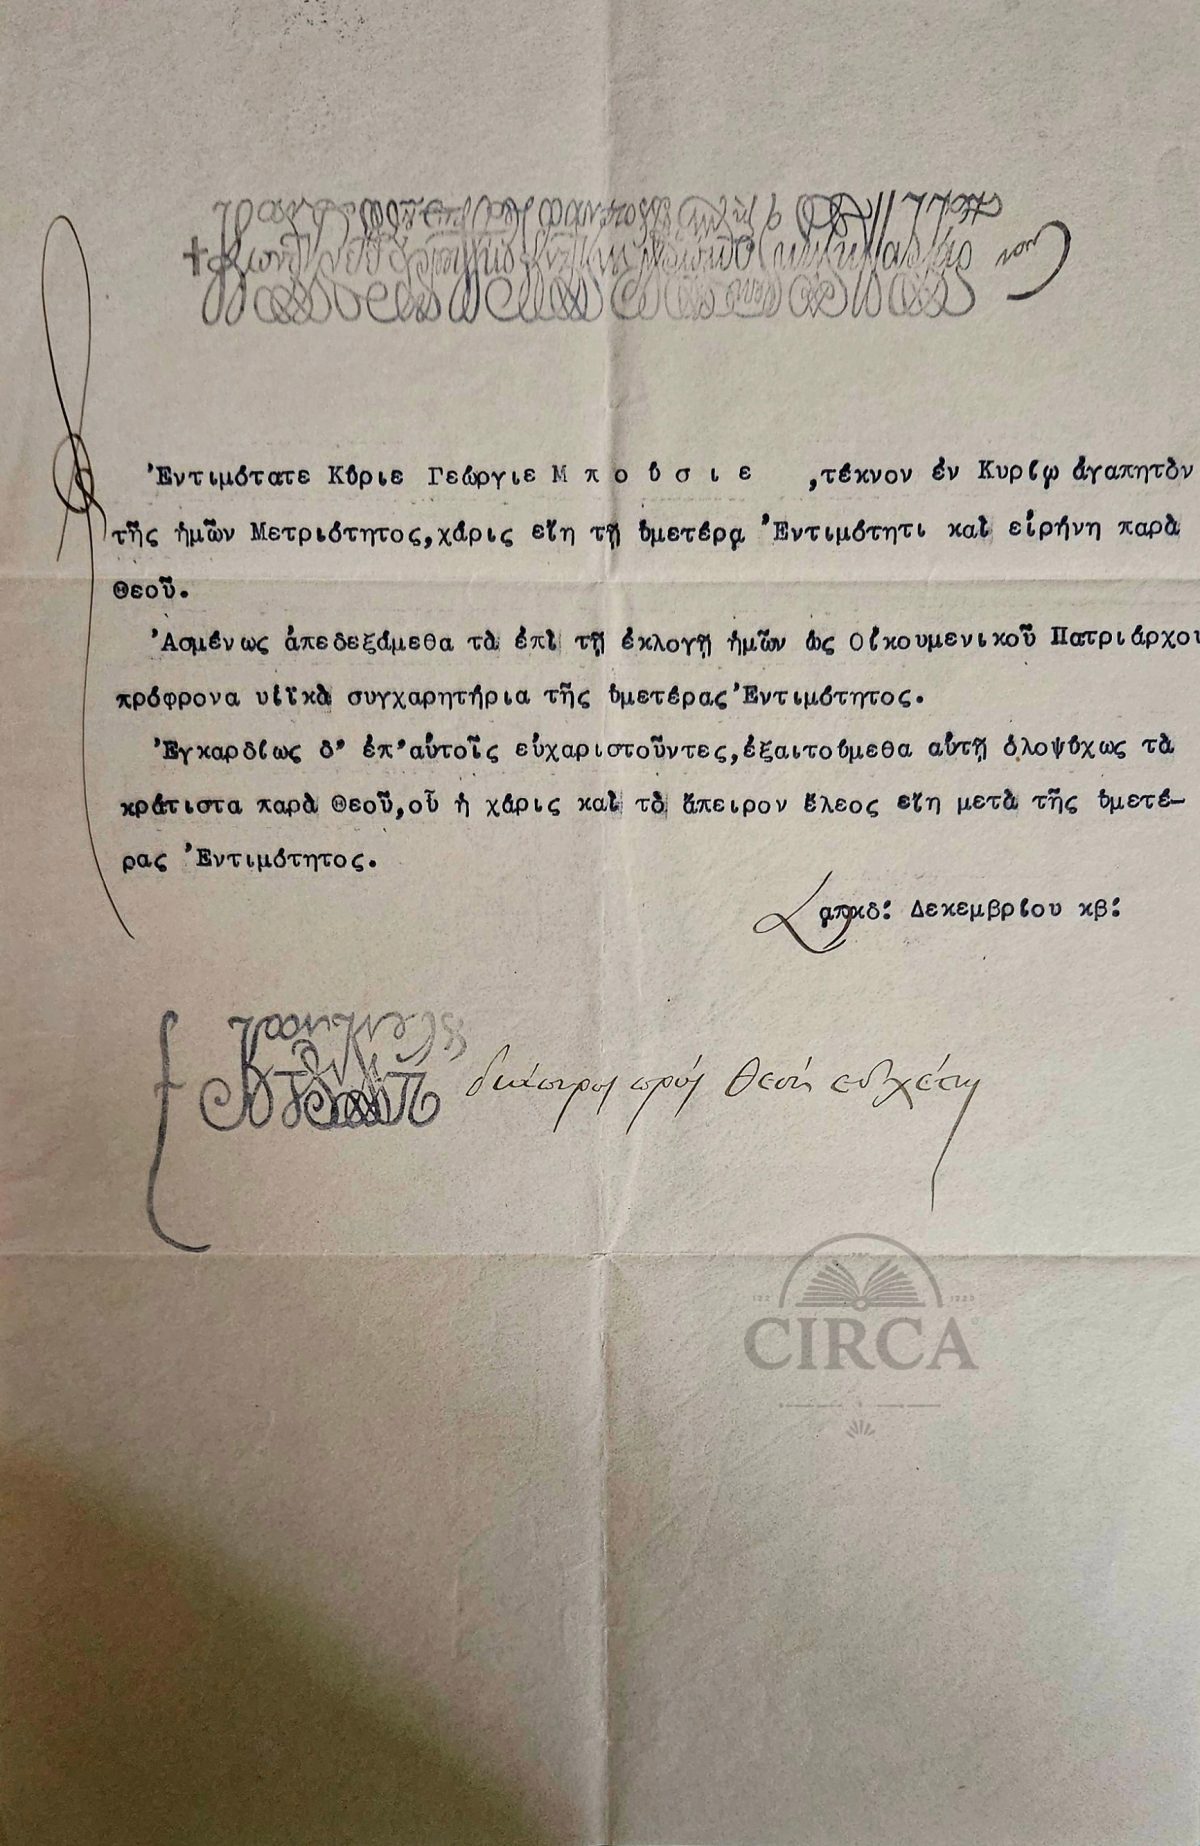 Ἐντιμότατε Κύριε Γεώργιε Μπούσιε ,τέκνον ἐν Κυρίῳ ἀγαπητὸν
τῆς ἡμῶν Μετριότητος,χάρις εἴη τῇ ὑμετέρᾳ Ἐντιμότητι καὶ εἰρήνη παρὰ
Θεοῦ.
Ἀσμένως ἀπεδεξάμεθα τὰ ἐπὶ τῇ ἐκλογῇ ἡμῶν ὡς Οἰκουμενικοῦ Πατριάρχου
πρόφρονα υἱϊκὰ συγχαρητήρια τῆς ὑμετέρας Ἐντιμότητος.
Ἐγκαρδίως δ' ἐπ'αὐτοῖς εὐχαριστοῦντες,ἐξαιτούμεθα αὐτῇ ὁλοψύχως τὰ
κράτιστα παρὰ Θεοῦ,οὗ ἡ χάρις καὶ τὸ ἄπειρον ἔλεος εἴη μετὰ τῆς ὑμετέ-
ρας Ἐντιμότητος.
Δεκεμβρίου κβ:
διάπυρος πρός Θεόν εὐχέτης
CIRCA